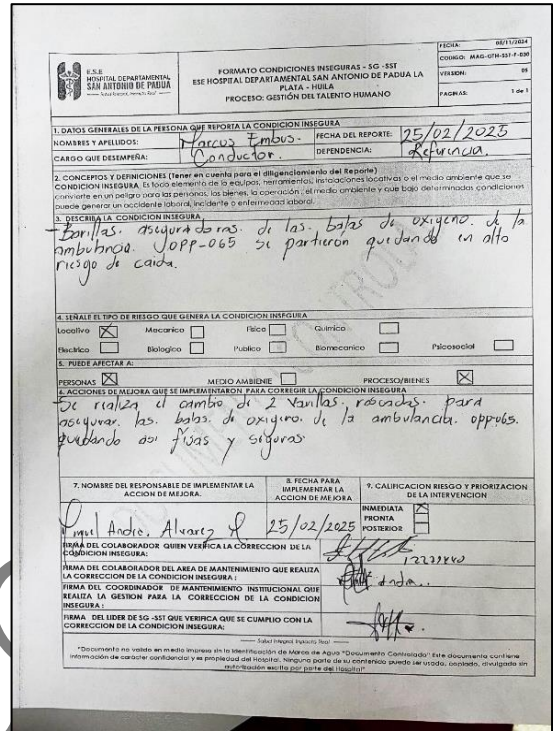 E.S.E
HOSPITAL DEPARTAMENTAL
SAN ANTONIO DE PADUA
Salud Integral, Impacto Real
FORMATO CONDICIONES INSEGURAS - SG -SST
ESE HOSPITAL DEPARTAMENTAL SAN ANTONIO DE PADUA LA
PLATA - HUILA
PROCESO: GESTIÓN DEL TALENTO HUMANO
FECHA: 08/11/2024
CODIGO: MAG-GTH-SST-F-030
VERSION: 05
PAGINAS: 1 de 1
1. DATOS GENERALES DE LA PERSONA QUE REPORTA LA CONDICION INSEGURA
NOMBRES Y APELLIDOS: Marcos Embus.
FECHA DEL REPORTE: 25/02/2025
CARGO QUE DESEMPEÑA: Conductor.
DEPENDENCIA: Referencia.
2. CONCEPTOS Y DEFINICIONES (Tener en cuenta para el diligenciamiento del Reporte)
CONDICION INSEGURA: Es todo elemento de la equipos, herramientas, instalaciones locativas o el medio ambiente que se
convierte en un peligro para las personas, los bienes, la operación, el medio ambiente y que bajo determinadas condiciones
puede generar un accidente laboral, incidente o enfermedad laboral.
3. DESCRIBA LA CONDICION INSEGURA
- Barillas. aseguradoras. de las. balas de oxigeno. de la
ambulancia. OPP-065 se partieron quedando en alto
riesgo de caida.
4. SEÑALE EL TIPO DE RIESGO QUE GENERA LA CONDICION INSEGURA
Locativo X Mecanico Fisico Quimico
Electrico Biologico Publico Biomecanico Psicosocial
5. PUEDE AFECTAR A:
PERSONAS X MEDIO AMBIENTE PROCESO/BIENES X
6. ACCIONES DE MEJORA QUE SE IMPLEMENTARON PARA CORREGIR LA CONDICION INSEGURA
- Se realiza el cambio de 2 Varillas. roscadas. para
asegurar. las. balas. de oxigeno. de la ambulancia. opp-065.
quedando asi fijas y seguras.
7. NOMBRE DEL RESPONSABLE DE IMPLEMENTAR LA
ACCION DE MEJORA.
8. FECHA PARA
IMPLEMENTAR LA
ACCION DE MEJORA
9. CALIFICACION RIESGO Y PRIORIZACION
DE LA INTERVENCION
Andre. Alvarez
25/02/2025
INMEDIATA X
PRONTA
POSTERIOR
FIRMA DEL COLABORADOR QUIEN VERIFICA LA CORRECCION DE LA
CONDICION INSEGURA:
FIRMA DEL COLABORADOR DEL AREA DE MANTENIMIENTO QUE REALIZA
LA CORRECCION DE LA CONDICION INSEGURA :
FIRMA DEL COORDINADOR DE MANTENIMIENTO INSTITUCIONAL QUE
REALIZA LA GESTION PARA LA CORRECCION DE LA CONDICION
INSEGURA :
FIRMA DEL LIDER DE SG -SST QUE VERIFICA QUE SE CUMPLIO CON LA
CORRECCION DE LA CONDICION INSEGURA:
Salud Integral, Impacto Real
"Documento no valido en medio impreso sin la identificación de Marca de Agua "Documento Controlado" Este documento contiene
información de carácter confidencial y es propiedad del Hospital. Ninguna parte de su contenido puede ser usado, copiado, divulgado sin
autorización escrita por parte del Hospital"